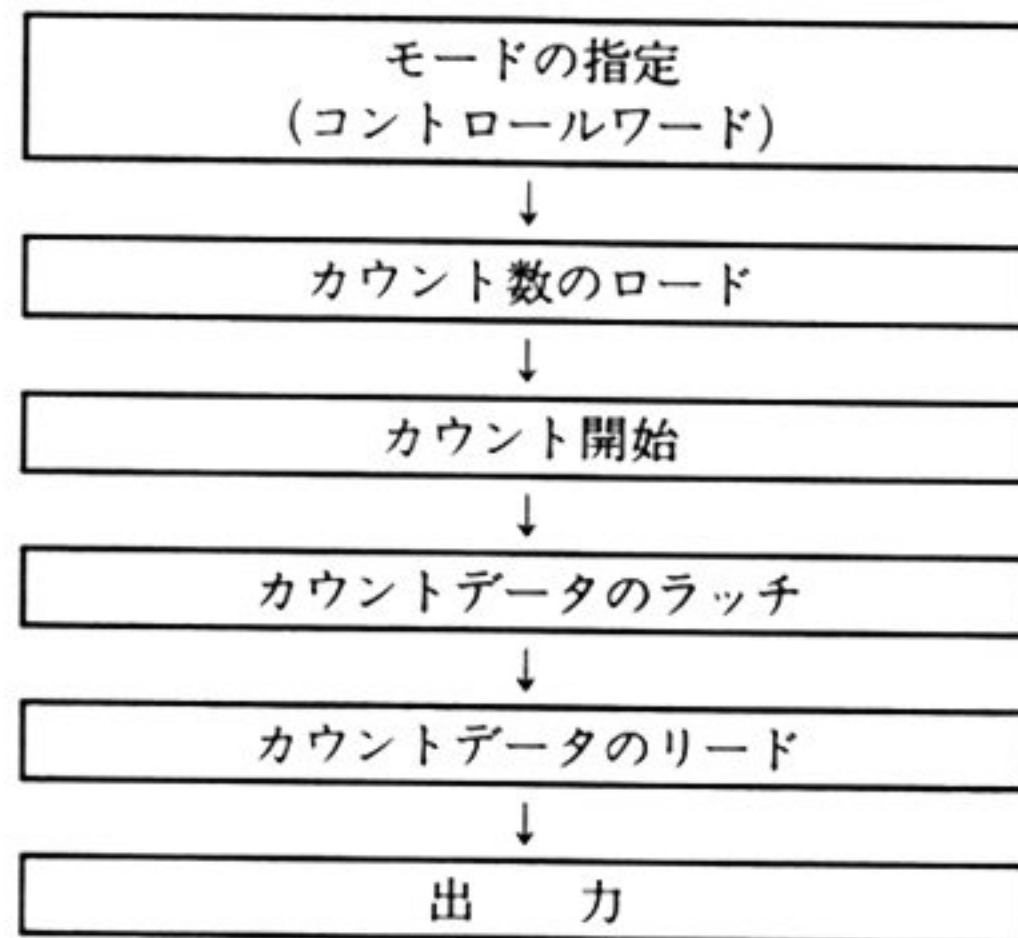 モードの指定
(コントロールワード)
↓
カウント数のロード
↓
カウント開始
↓
カウントデータのラッチ
↓
カウントデータのリード
↓
出　力